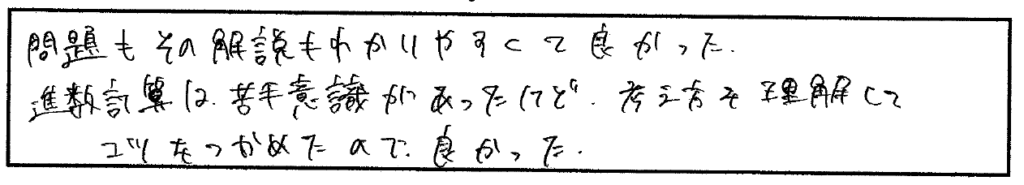 問題もその解説もわかりやすくて良かった.
進数計算は.苦手意識があったけど.考え方を理解して
コツをつかめたので.良かった.